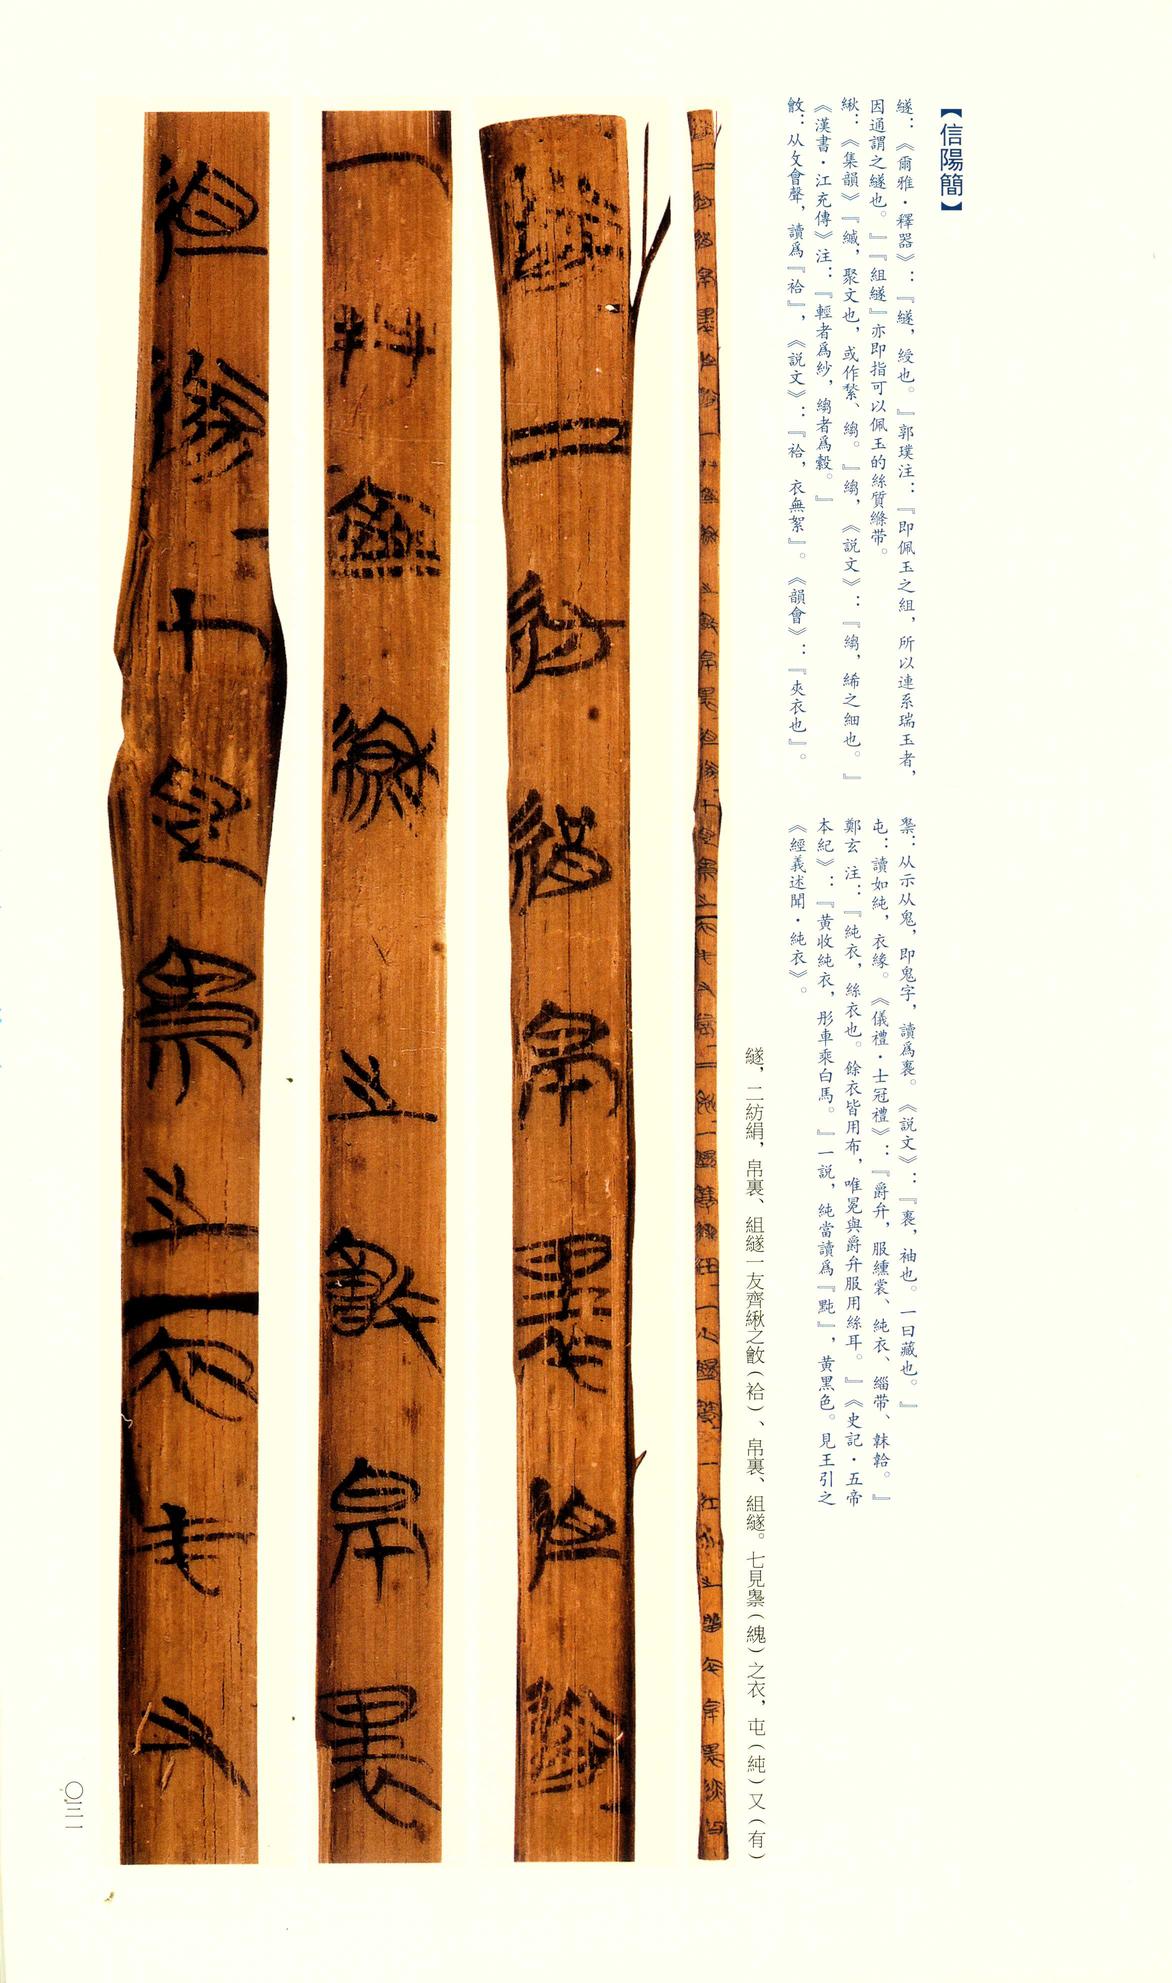 【信陽簡】
繸：《爾雅·釋器》：『繸，綬也。』郭璞注：『即佩玉之組，所以連系瑞玉者，
因通謂之繸也。』『組繸』亦即指可以佩玉的絲質縧带。
緅：《集韻》『緘，聚文也，或作䋺、縐。』縐，《説文》：『縐，絺之細也。』
《漢書·江充傳》注：『輕者爲紗，縐者爲縠。』
㪉：从攵會聲，讀爲『袷』，《説文》：『袷，衣無絮』。《韻會》：『夾衣也』。
䰡：从示从鬼，即鬼字，讀爲褢。《説文》：『褢，袖也。一曰藏也。』
屯：讀如純，衣緣。《儀禮·士冠禮》：『爵弁，服纁裳、純衣、緇带、韎韐。』
鄭玄 注：『純衣，絲衣也。餘衣皆用布，唯冕與爵弁服用絲耳。』《史記·五帝
本紀》：『黄收純衣，彤車乘白馬。』一説，純當讀爲『黗』，黄黑色。見王引之
《經義述聞·純衣》。
繸，二紡絹，帛裏、組繸一友齊緅之㪉（袷）、帛裏、組繸。七見䰡（䌆）之衣，屯（純）又（有）
〇三一